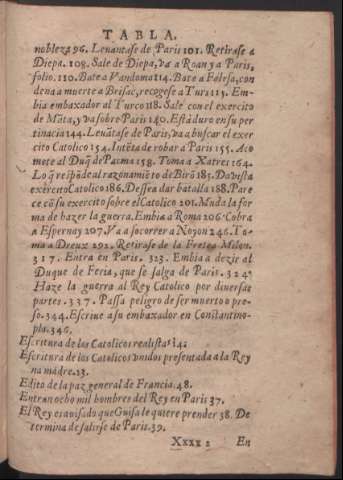 TABLA.
nobleza 96. Leuantase de Paris 101. Retirase a
Diepa. 109. Sale de Diepa, va a Roan y a Paris,
folio. 110. Bate a Vandoma 114. Bate a Falesa, con
dena a muerte a Brisac, recogese a Turs 115. Em-
bia embaxador al Turco 118. Sale con el exercito
de Mãta, y va sobre Paris 140. Està duro en su per
tinacia 144. Leuãtase de Paris, va a buscar el exer
cito Catolico 154. Intẽta de robar a Paris 155. Aco
mete al Duq̃ de Parma 158. Toma a Xatres 164.
Lo q̃ respõde al razonamiẽto de Birõ 185. Do vista
exercito Catolico 186. Dessea dar batalla 188. Pare
ce cõ su exercito sobre el Catolico 201. Muda la for
ma de hazer la guerra. Embia a Roma 206. Cobra
a Espernay 207. Va a socorrer a Noyon 246. To-
ma a Dreux 292. Retirase de la Fretea Milon.
317. Entra en Paris. 323. Embia a dezir al
Duque de Feria, que se salga de Paris. 324.
Haze la guerra al Rey Catolico por diuersas
partes. 337. Passa peligro de ser muerto o pre-
so. 344. Escriue a su embaxador en Constantino-
pla. 346.
Escritura de los Catolicos realistas 14.
Escritura de los Catolicos vnidos presentada a la Rey
na madre. 13.
Edito de la paz general de Francia. 48.
Entran ocho mil hombres del Rey en Paris 37.
El Rey es auisado que Guisa le quiere prender 38. De
termina de salirse de Paris. 39.
Xxxx 2 En